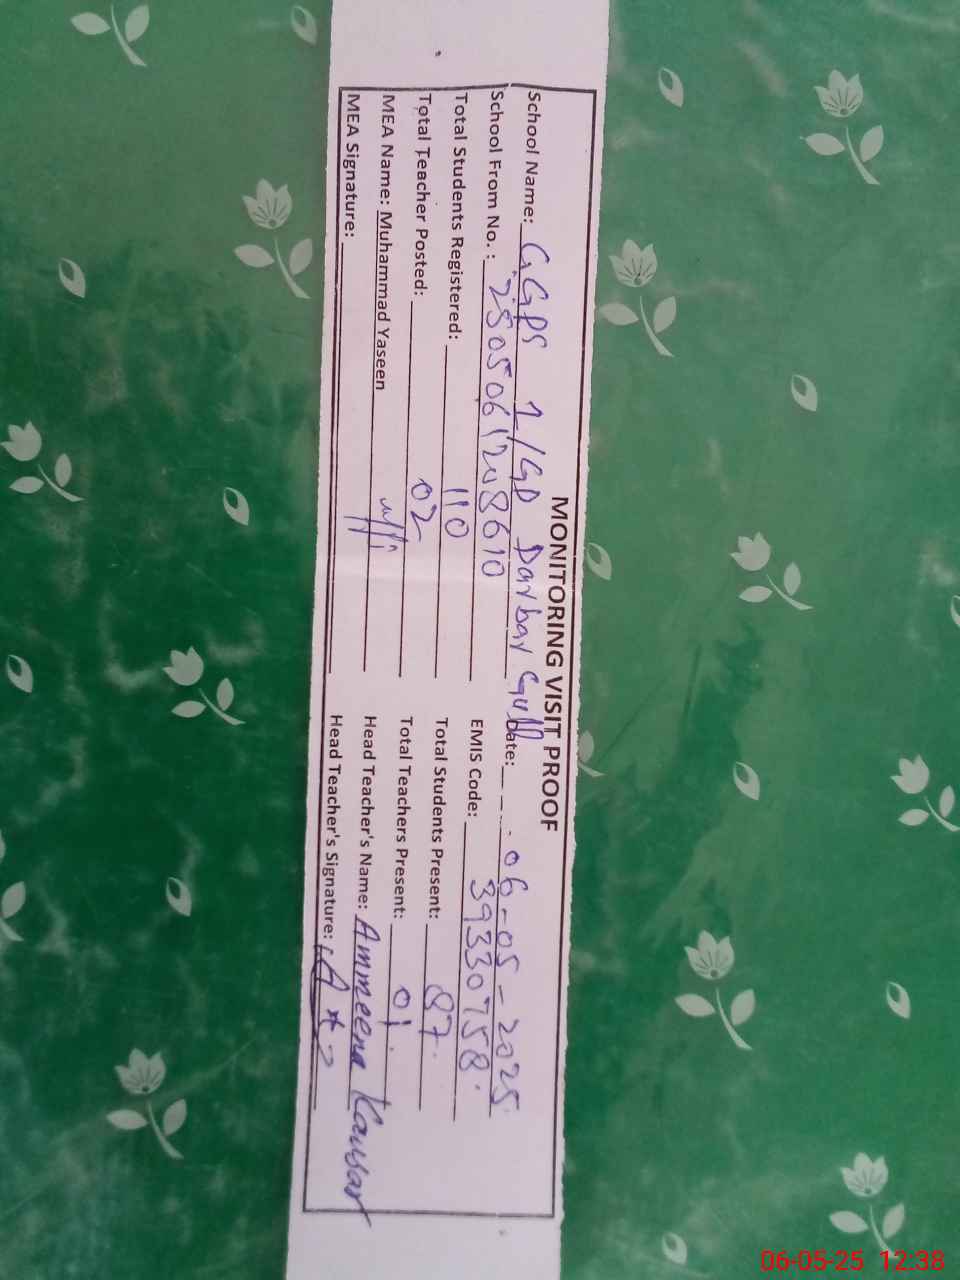 MONITORING VISIT PROOF
School Name: GGPS 1/GD Darbar Gull Date: 06-05-2025
School From No. : 2505061208610 EMIS Code: 39330758
Total Students Registered: 110 Total Students Present: 87
Total Teacher Posted: 02 Total Teachers Present: 01
MEA Name: Muhammad Yaseen Head Teacher's Name: Ammeena Kausar
MEA Signature: Head Teacher's Signature:
06-05-25 12:38